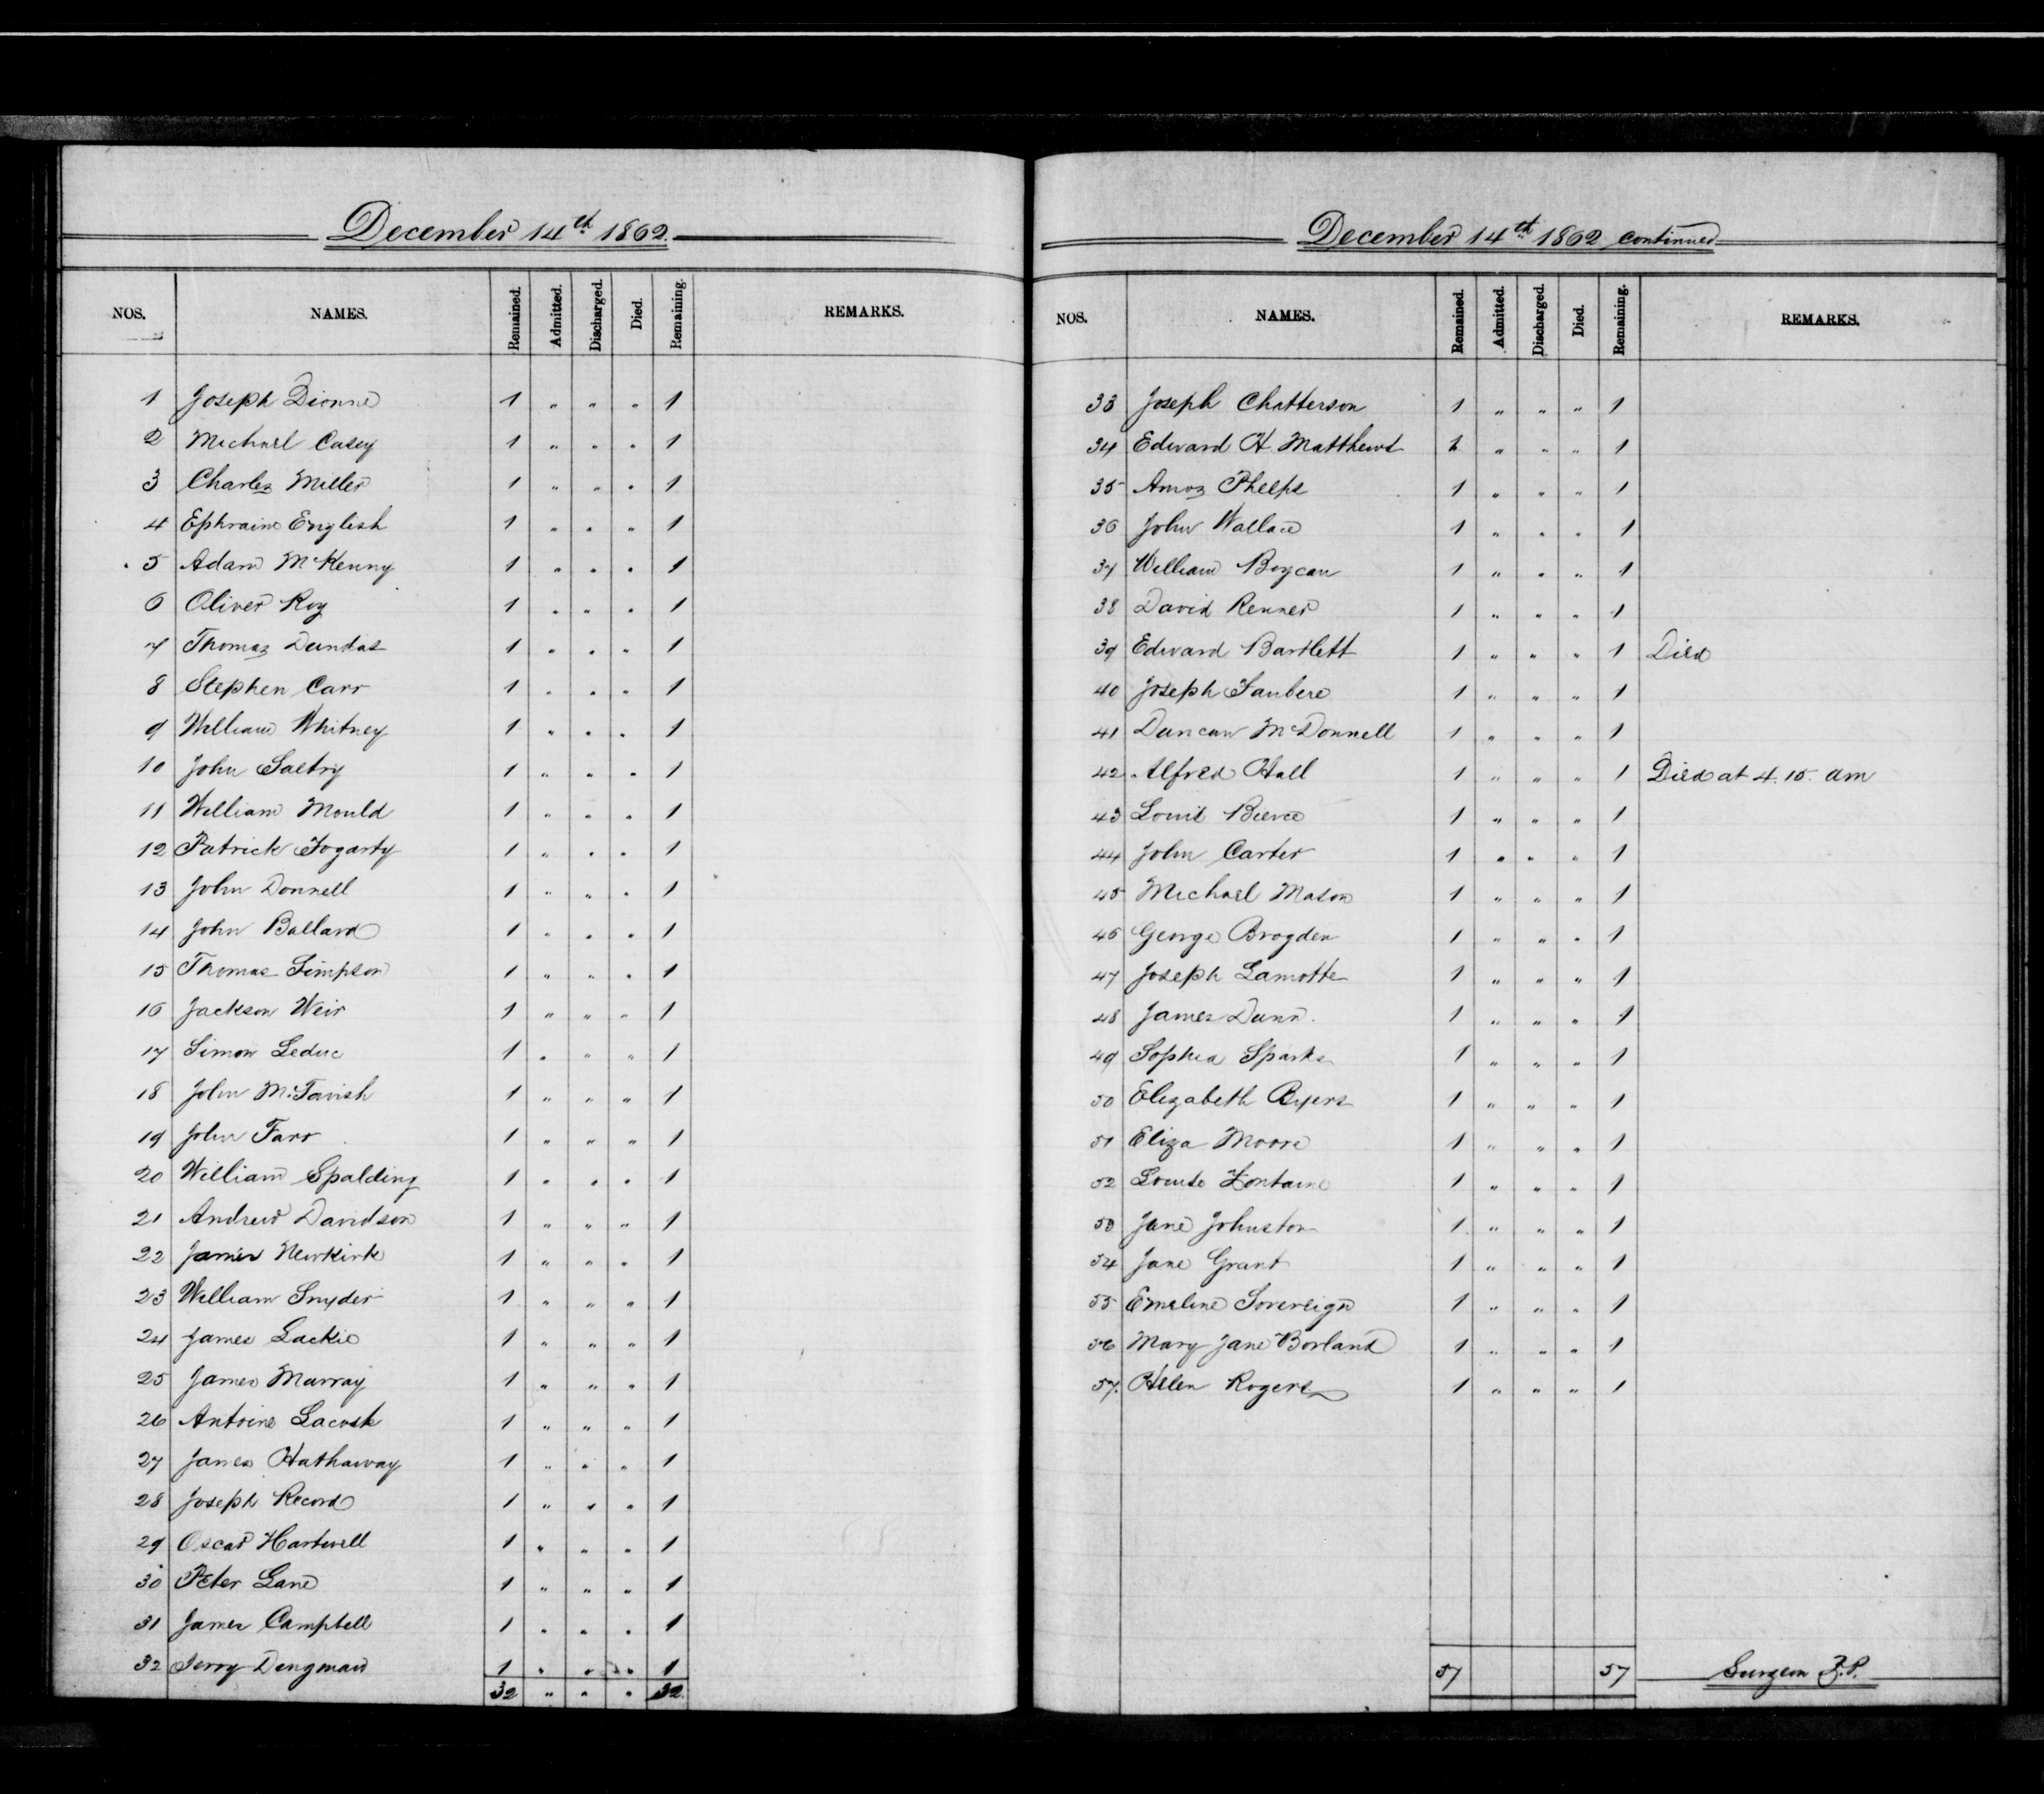 December 14th 1862.
NOS. NAMES. Remained. Admitted. Discharged. Died. Remaining. REMARKS.
1 Joseph Dionne 1 " " " 1
2 Michael Casey 1 " " " 1
3 Charles Miller 1 " " " 1
4 Ephraim English 1 " " " 1
5 Adam McKenny 1 " " " 1
6 Oliver Roy 1 " " " 1
7 Thomas Dundas 1 " " " 1
8 Stephen Carr 1 " " " 1
9 William Whitney 1 " " " 1
10 John Saetry 1 " " " 1
11 William Mould 1 " " " 1
12 Patrick Fogarty 1 " " " 1
13 John Donnell 1 " " " 1
14 John Ballard 1 " " " 1
15 Thomas Simpson 1 " " " 1
16 Jackson Weir 1 " " " 1
17 Simon Leduc 1 " " " 1
18 John McTavish 1 " " " 1
19 John Farr 1 " " " 1
20 William Spalding 1 " " " 1
21 Andrew Davidson 1 " " " 1
22 James Newkirk 1 " " " 1
23 William Snyder 1 " " " 1
24 James Lackie 1 " " " 1
25 James Murray 1 " " " 1
26 Antoine Lacost 1 " " " 1
27 James Hathaway 1 " " " 1
28 Joseph Record 1 " " " 1
29 Oscar Hartwell 1 " " " 1
30 Peter Lane 1 " " " 1
31 James Campbell 1 " " " 1
32 Jerry Dingman 1 " " " 1
32 " " " 32
December 14th 1862 continued
NOS. NAMES. Remained. Admitted. Discharged. Died. Remaining. REMARKS.
33 Joseph Chatterson 1 " " " 1
34 Edward H Matthews 1 " " " 1
35 Amos Phelps 1 " " " 1
36 John Wallace 1 " " " 1
37 William Boycan 1 " " " 1
38 David Renner 1 " " " 1
39 Edward Bartlett 1 " " " 1 Died
40 Joseph Faubere 1 " " " 1
41 Duncan McDonnell 1 " " " 1
42 Alfred Hall 1 " " " 1 Died at 4.15. am
43 Louis Bierce 1 " " " 1
44 John Carter 1 " " " 1
45 Michael Mason 1 " " " 1
46 George Brogden 1 " " " 1
47 Joseph Lamotte 1 " " " 1
48 James Dunn. 1 " " " 1
49 Sophia Sparks 1 " " " 1
50 Elizabeth Byers 1 " " " 1
51 Eliza Moore 1 " " " 1
52 Louise Fontaine 1 " " " 1
53 Jane Johnston 1 " " " 1
54 Jane Grant 1 " " " 1
55 Emeline Sovereign 1 " " " 1
56 Mary Jane Borland 1 " " " 1
57. Helen Rogers 1 " " " 1
57 57 Surgeon P.P.